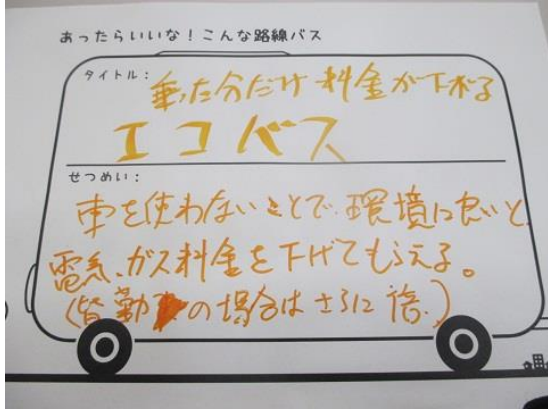 あったらいいな！こんな路線バス
タイトル：
乗った分だけ料金が下がる
エコバス
せつめい：
車を使わないことで、環境に良いと
電気、ガス料金を下げてもらえる。
(皆勤の場合はさらに倍.)